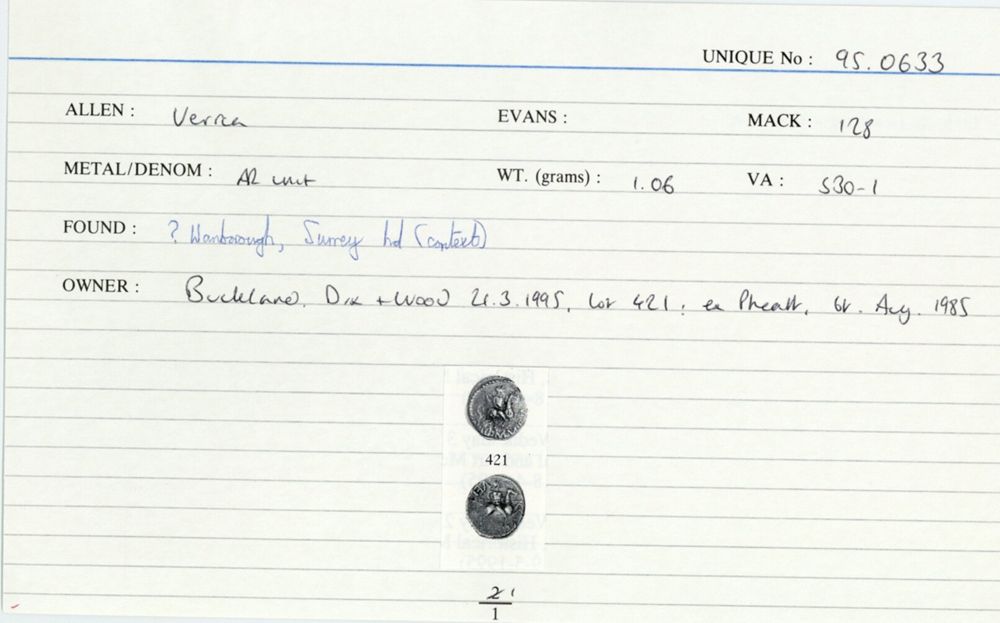 UNIQUE No : 95.0633
ALLEN : Verica EVANS : MACK : 128
METAL/DENOM : AR unit WT. (grams) : 1.06 VA : 530-1
FOUND : ? Wanborough, Surrey hd (context)
OWNER : Buckland, Dix + Wood 21.3.1995, lot 421 ; ex Pheatt, bt. Aug. 1985
421
21
1